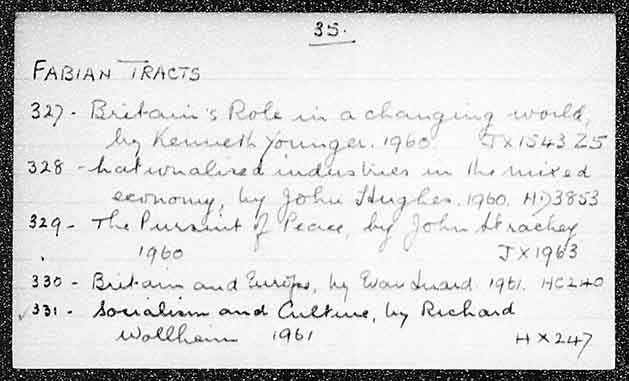 35.
FABIAN TRACTS
327 - Britain's Role in a changing world,
by Kenneth Younger. 1960 JX1543 Z5
328 - Nationalised industries in the mixed
economy, by John Hughes. 1960. HD3853
329 - The Pursuit of Peace, by John Strachey
1960 JX1963
330 - Britain and Europe, by Evan Luard. 1961. HC240
✓331 - Socialism and Culture, by Richard
Wollheim 1961 HX247